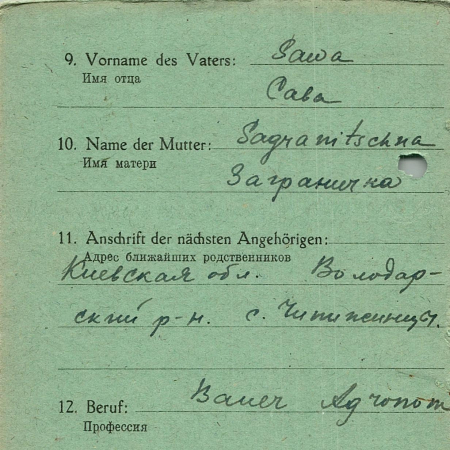 9. Vorname des Vaters: Sawa
Имя отца
Сава
10. Name der Mutter: Sagranitschna
Имя матери
Загранична
11. Anschrift der nächsten Angehörigen:
Адрес ближайших родственников
Киевская обл. Володар-
ский р-н. с. Чипижинцы.
12. Beruf: Bauer Agronom
Профессия